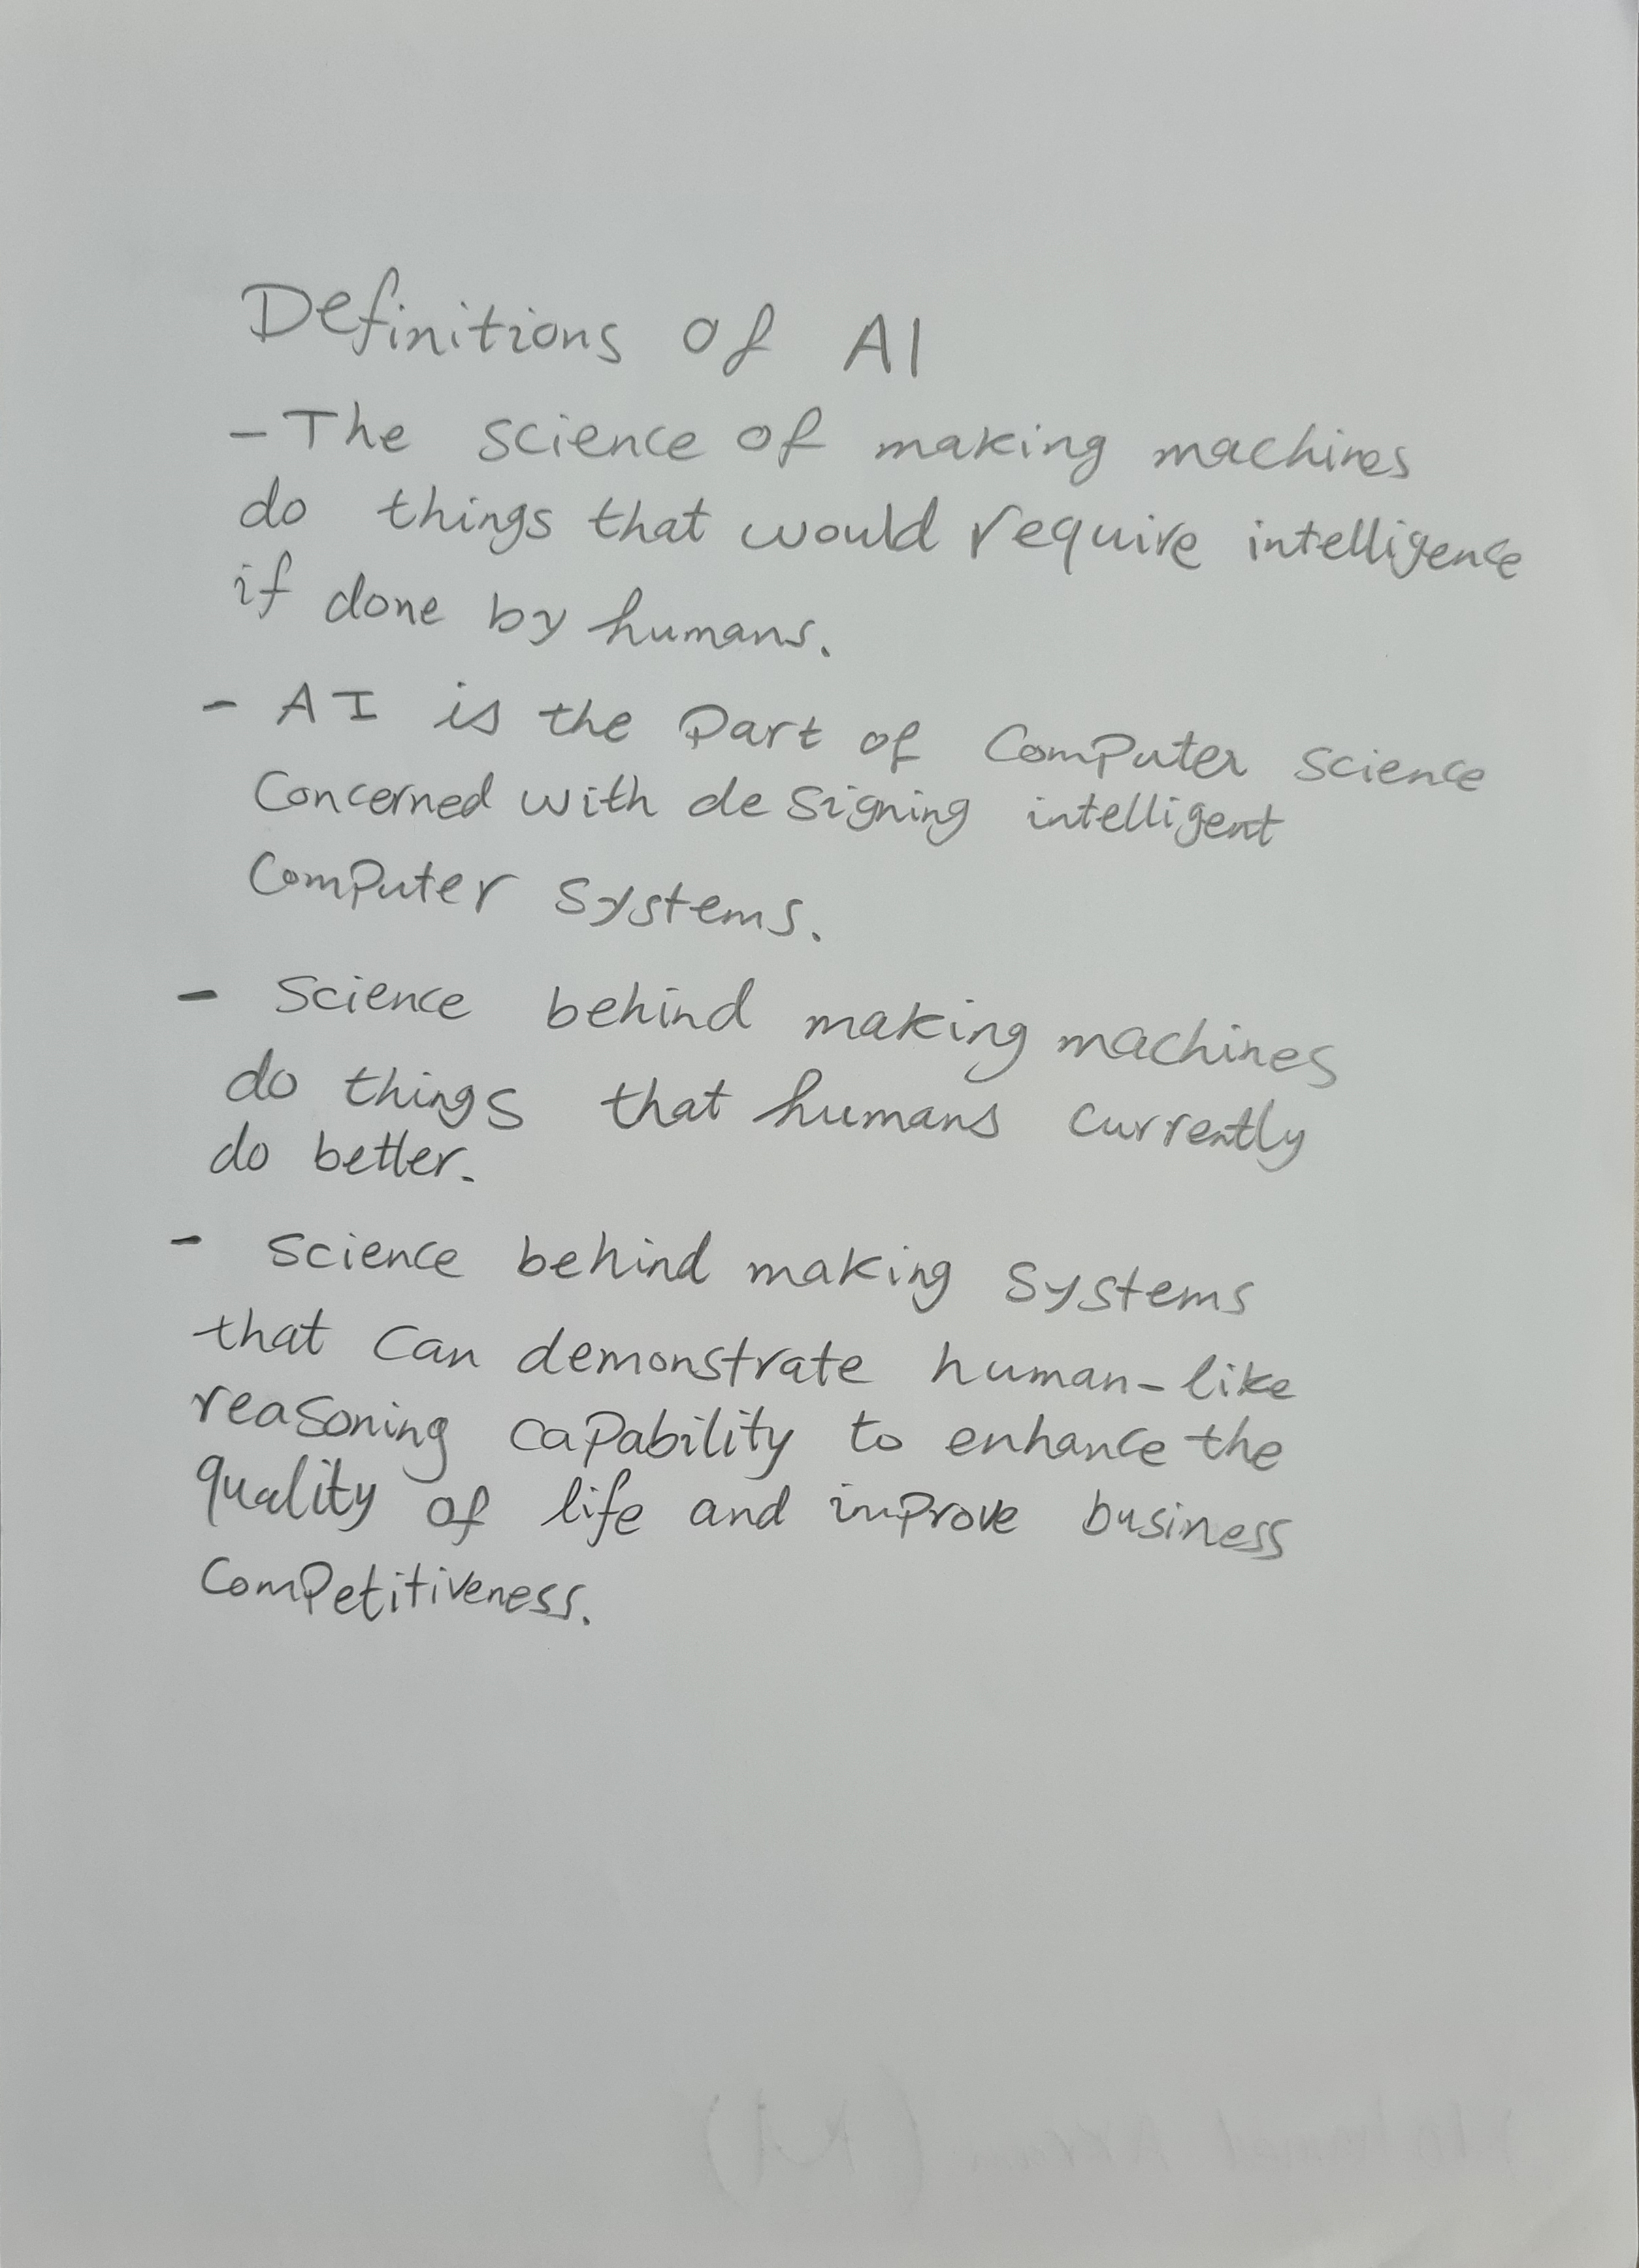 Definitions of AI
- The science of making machines
do things that would require intelligence
if done by humans.
- AI is the Part of Computer science
Concerned with designing intelligent
Computer Systems.
- Science behind making machines
do things that humans currently
do better.
- Science behind making Systems
that can demonstrate human-like
reasoning capability to enhance the
quality of life and improve business
Competitiveness.